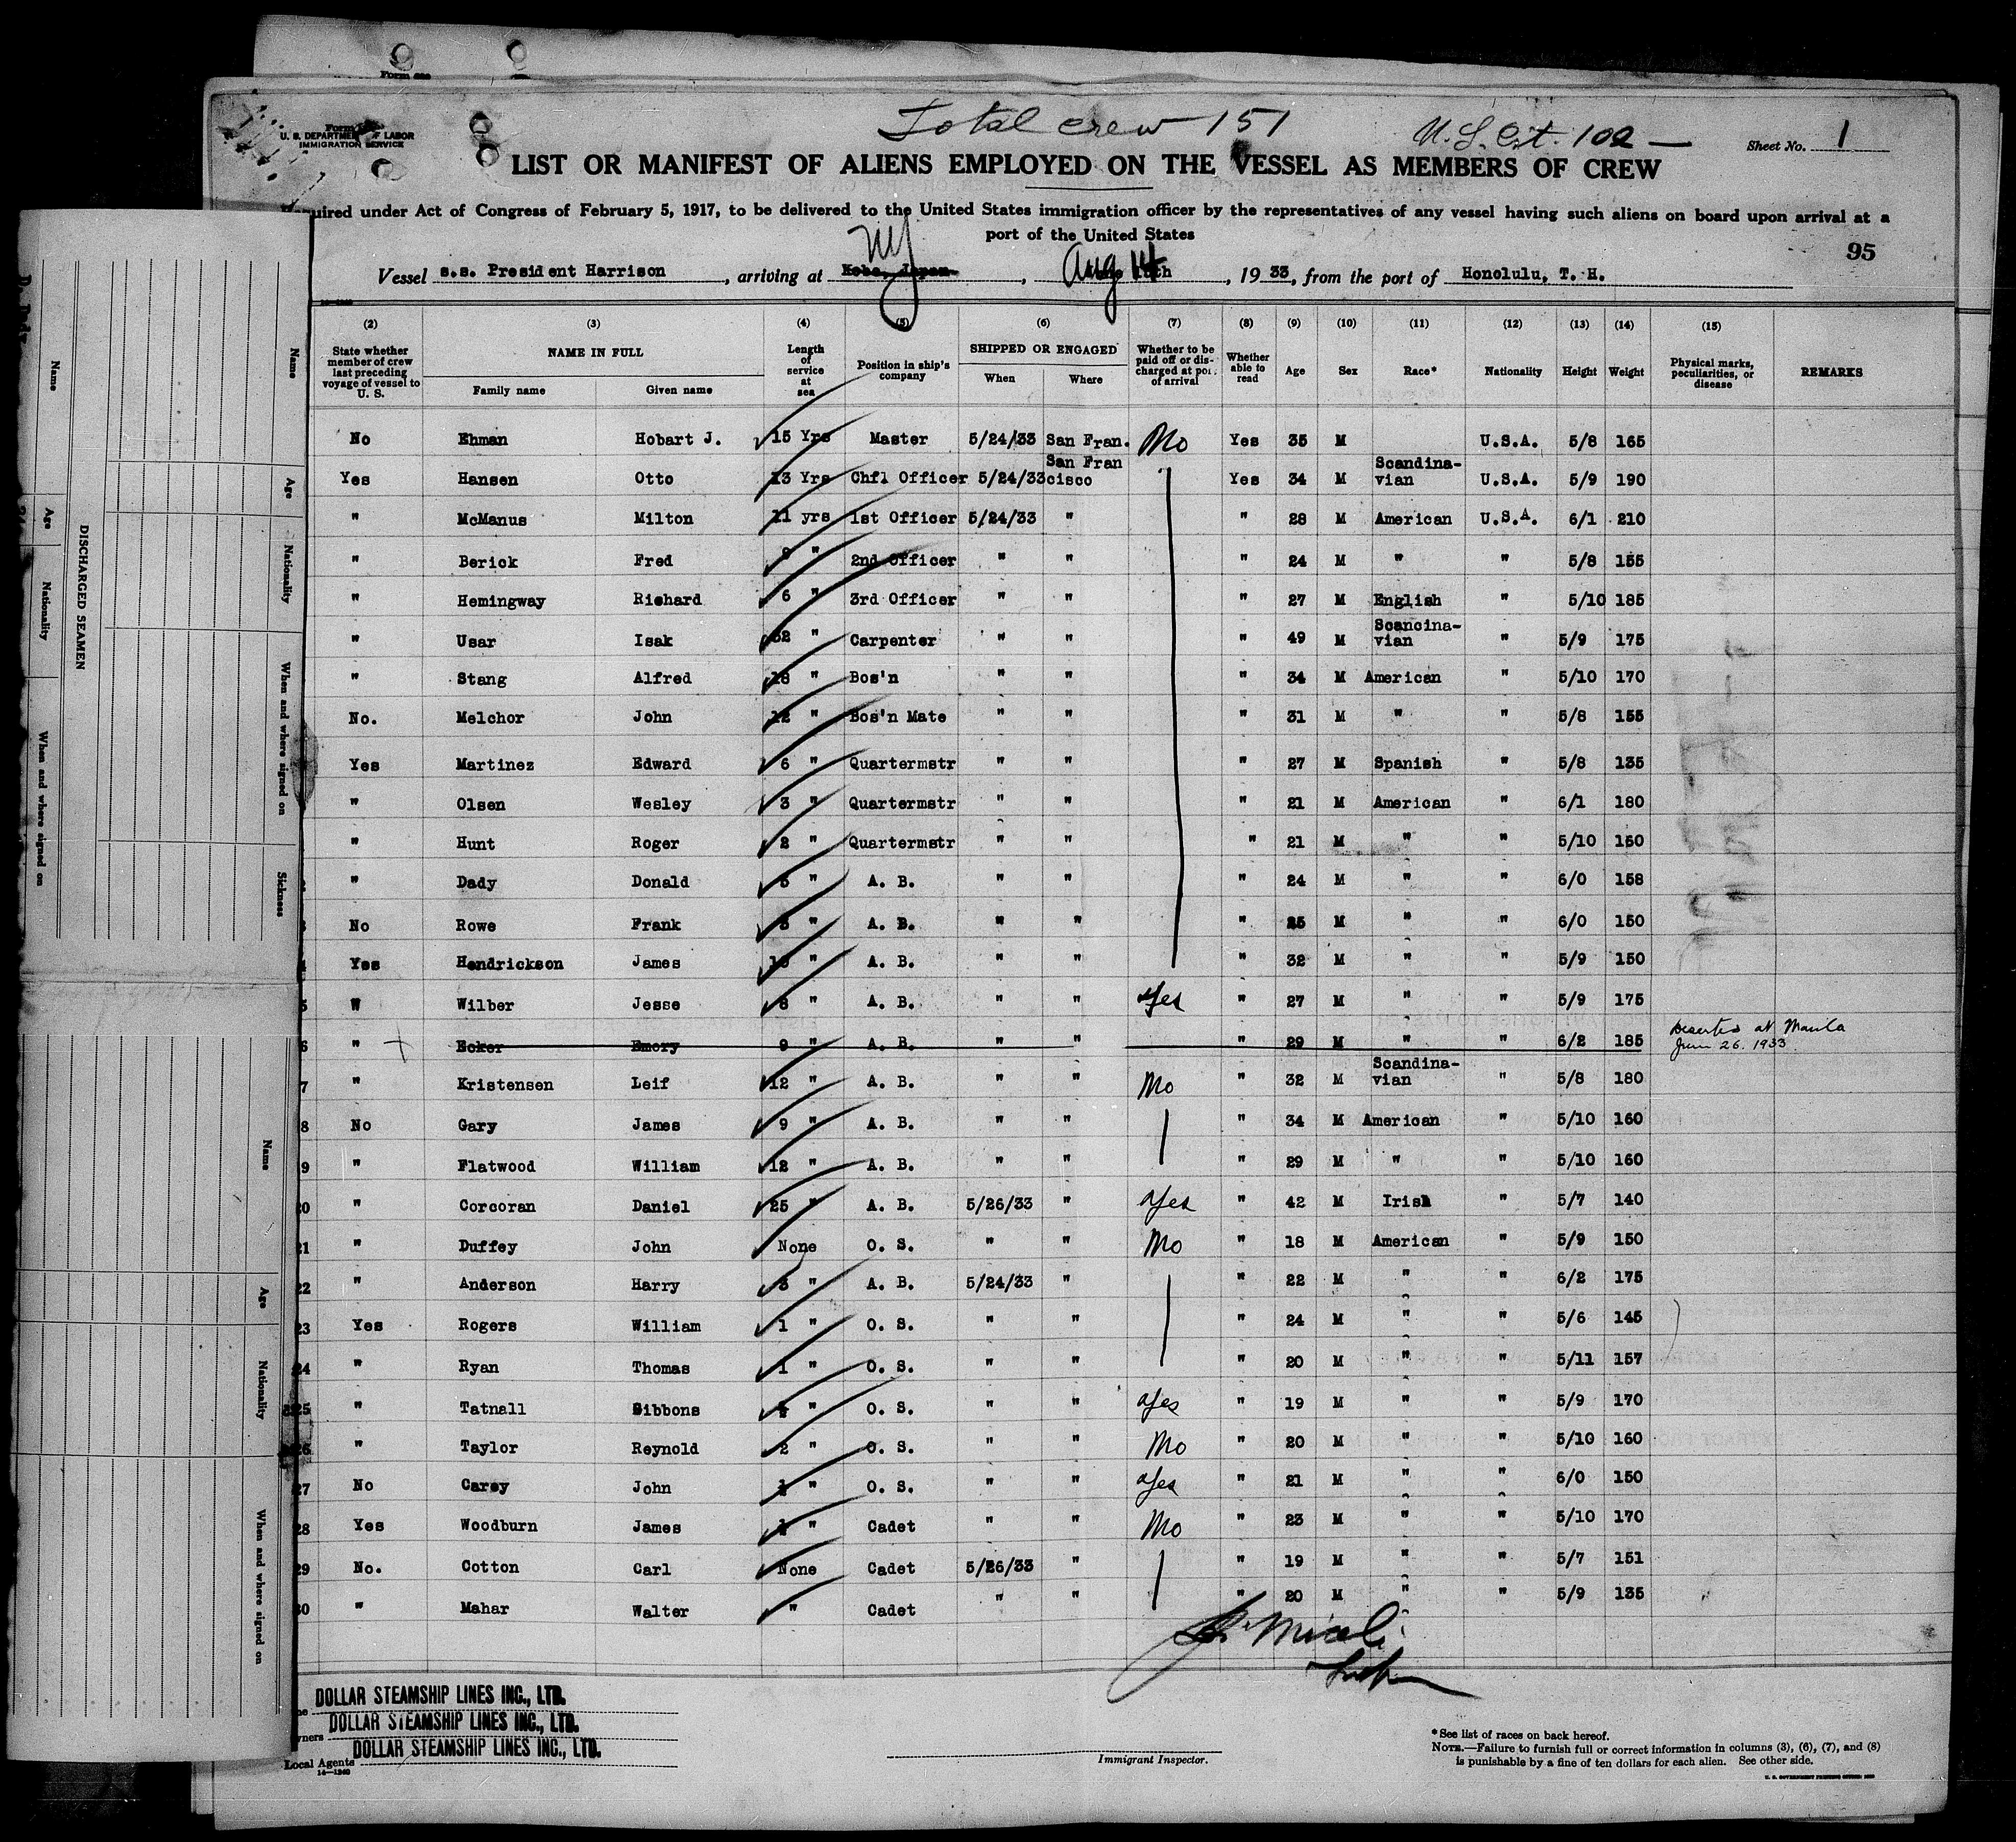 Total crew 151
U. S. Cit. 102 —
Form
U. S. DEPARTMENT OF LABOR
IMMIGRATION SERVICE
Sheet No. 1
LIST OR MANIFEST OF ALIENS EMPLOYED ON THE VESSEL AS MEMBERS OF CREW
quired under Act of Congress of February 5, 1917, to be delivered to the United States immigration officer by the representatives of any vessel having such aliens on board upon arrival at a
port of the United States
95
Vessel s.s. President Harrison, arriving at Kobe, Japan NY, Aug 14 th, 1933, from the port of Honolulu, T. H.
(2) (3) (4) (5) (6) (7) (8) (9) (10) (11) (12) (13) (14) (15)
State whether member of crew last preceding voyage of vessel to U. S.
NAME IN FULL
Family name Given name
Length of service at sea
Position in ship's company
SHIPPED OR ENGAGED
When Where
Whether to be paid off or discharged at port of arrival
Whether able to read
Age Sex Race* Nationality Height Weight
Physical marks, peculiarities, or disease
REMARKS
No Ehman Hobart J. 15 Yrs Master 5/24/33 San Fran. No Yes 35 M U.S.A. 5/8 165
Yes Hansen Otto 13 Yrs Chfl Officer 5/24/33 San Francisco Yes 34 M Scandina-vian U.S.A. 5/9 190
" McManus Milton 11 yrs 1st Officer 5/24/33 " " 28 M American U.S.A. 6/1 210
" Berick Fred 9 " 2nd Officer " " " 24 M " " 5/8 155
" Hemingway Richard 6 " 3rd Officer " " " 27 M English " 5/10 185
" Usar Isak 32 " Carpenter " " " 49 M Scancina-vian " 5/9 175
" Stang Alfred 18 " Bos'n " " " 34 M American " 5/10 170
No. Melchor John 12 " Bos'n Mate " " " 31 M " " 5/8 155
Yes Martinez Edward 6 " Quartermstr " " " 27 M Spanish " 5/8 135
" Olsen Wesley 3 " Quartermstr " " " 21 M American " 6/1 180
" Hunt Roger 2 " Quartermstr " " " 21 M " " 5/10 160
" Dady Donald 5 " A. B. " " " 24 M " " 6/0 158
No Rowe Frank " A. B. " " " 25 M " " 6/0 150
Yes Hendrickson James " A. B. " " " 32 M " " 5/9 150
5 W Wilber Jesse 8 " A. B. " " Yes " 27 M " " 5/9 175
6 " Ecker Emory 9 " A. B. " " " 29 M " " 6/2 185 Deserted at Manila June 26. 1933
7 " Kristensen Leif 12 " A. B. " " No " 32 M Scandina-vian " 5/8 180
8 No Gary James 9 " A. B. " " " 34 M American " 5/10 160
9 " Flatwood William 12 " A. B. " " " 29 M " " 5/10 160
20 " Corcoran Daniel 25 " A. B. 5/26/33 " Yes " 42 M Irish " 5/7 140
21 " Duffey John None O. S. " " No " 18 M American " 5/9 150
22 " Anderson Harry 3 " A. B. 5/24/33 " " 22 M " " 6/2 175
23 Yes Rogers William 1 " O. S. " " " 24 M " " 5/6 145
24 " Ryan Thomas 1 " O. S. " " " 20 M " " 5/11 157
25 " Tatnall Sibbons " O. S. " " Yes " 19 M " " 5/9 170
26 " Taylor Reynold 2 " O. S. " " No " 20 M " " 5/10 160
27 No Carey John ½ " O. S. " " Yes " 21 M " " 6/0 150
28 Yes Woodburn James " Cadet " " No " 23 M " " 5/10 170
29 No. Cotton Carl None Cadet 5/26/33 " " 19 M " " 5/7 151
30 " Mahar Walter " Cadet " " " 20 M " " 5/9 135
DOLLAR STEAMSHIP LINES INC., LTD.
wners DOLLAR STEAMSHIP LINES INC., LTD.
Local Agents DOLLAR STEAMSHIP LINES INC., LTD.
14—1240
Immigrant Inspector.
*See list of races on back hereof.
NOTE.—Failure to furnish full or correct information in columns (3), (6), (7), and (8)
is punishable by a fine of ten dollars for each alien. See other side.
DISCHARGED SEAMEN
Name Age Nationality When and where signed on
Name Age Nationality When and where signed on Sickness
Name Age Nationality When and where signed on